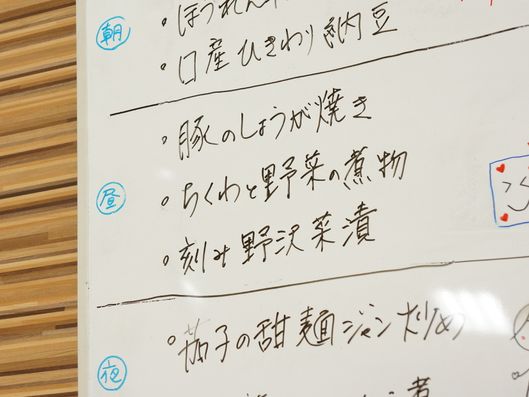 朝
・ほうれん
・国産ひきわり納豆
昼
・豚のしょうが焼き
・ちくわと野菜の煮物
・刻み野沢菜漬
夜
・茄子の甜麺ジャン炒め